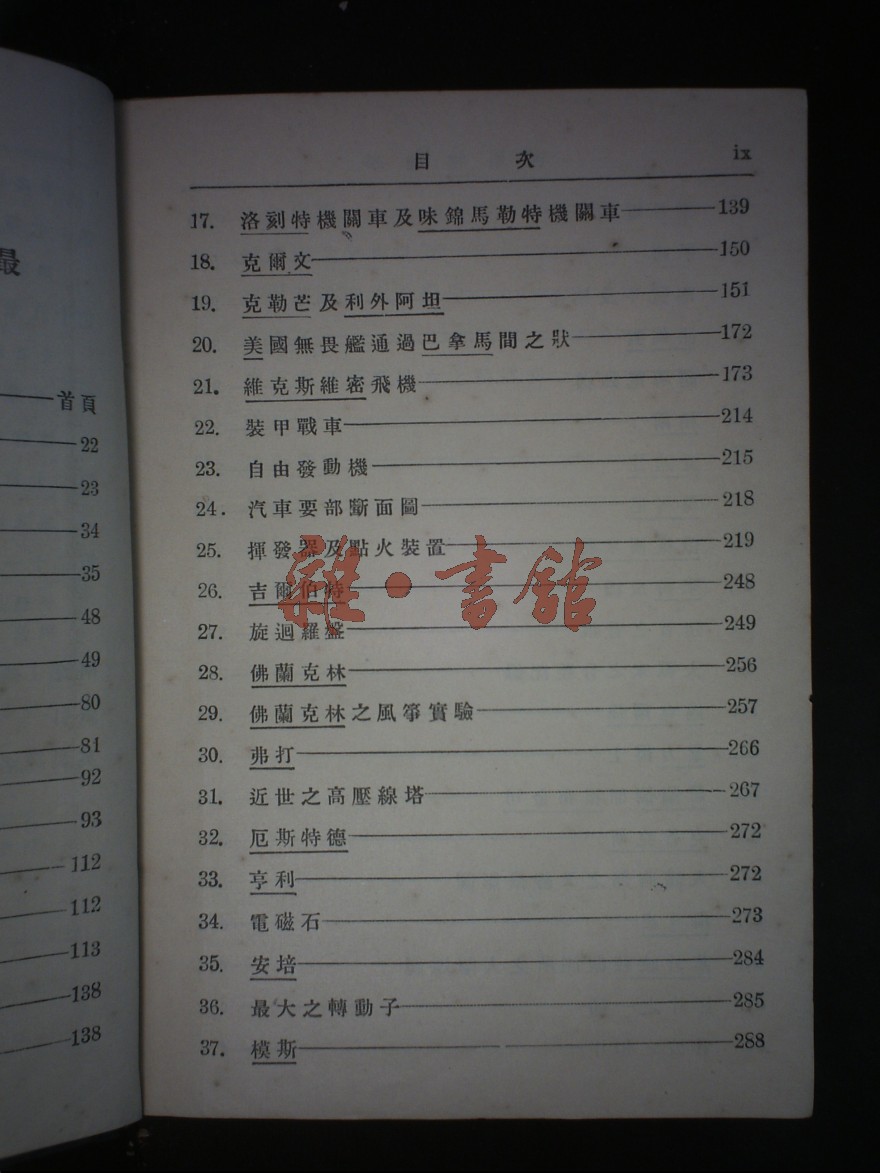 最
首頁
22
23
34
35
48
49
80
81
92
93
112
112
113
138
138
目次 ix
17. 洛刻特機關車及味錦馬勒特機關車 139
18. 克爾文 150
19. 克勒芒及利外阿坦 151
20. 美國無畏艦通過巴拿馬間之狀 172
21. 維克斯維密飛機 173
22. 裝甲戰車 214
23. 自由發動機 215
24. 汽車要部斷面圖 218
25. 揮發器及點火裝置 219
26. 吉爾伯特 248
27. 旋迴羅盤 249
28. 佛蘭克林 256
29. 佛蘭克林之風箏實驗 257
30. 弗打 266
31. 近世之高壓線塔 267
32. 厄斯特德 272
33. 亨利 272
34. 電磁石 273
35. 安培 284
36. 最大之轉動子 285
37. 模斯 288
雜·書館